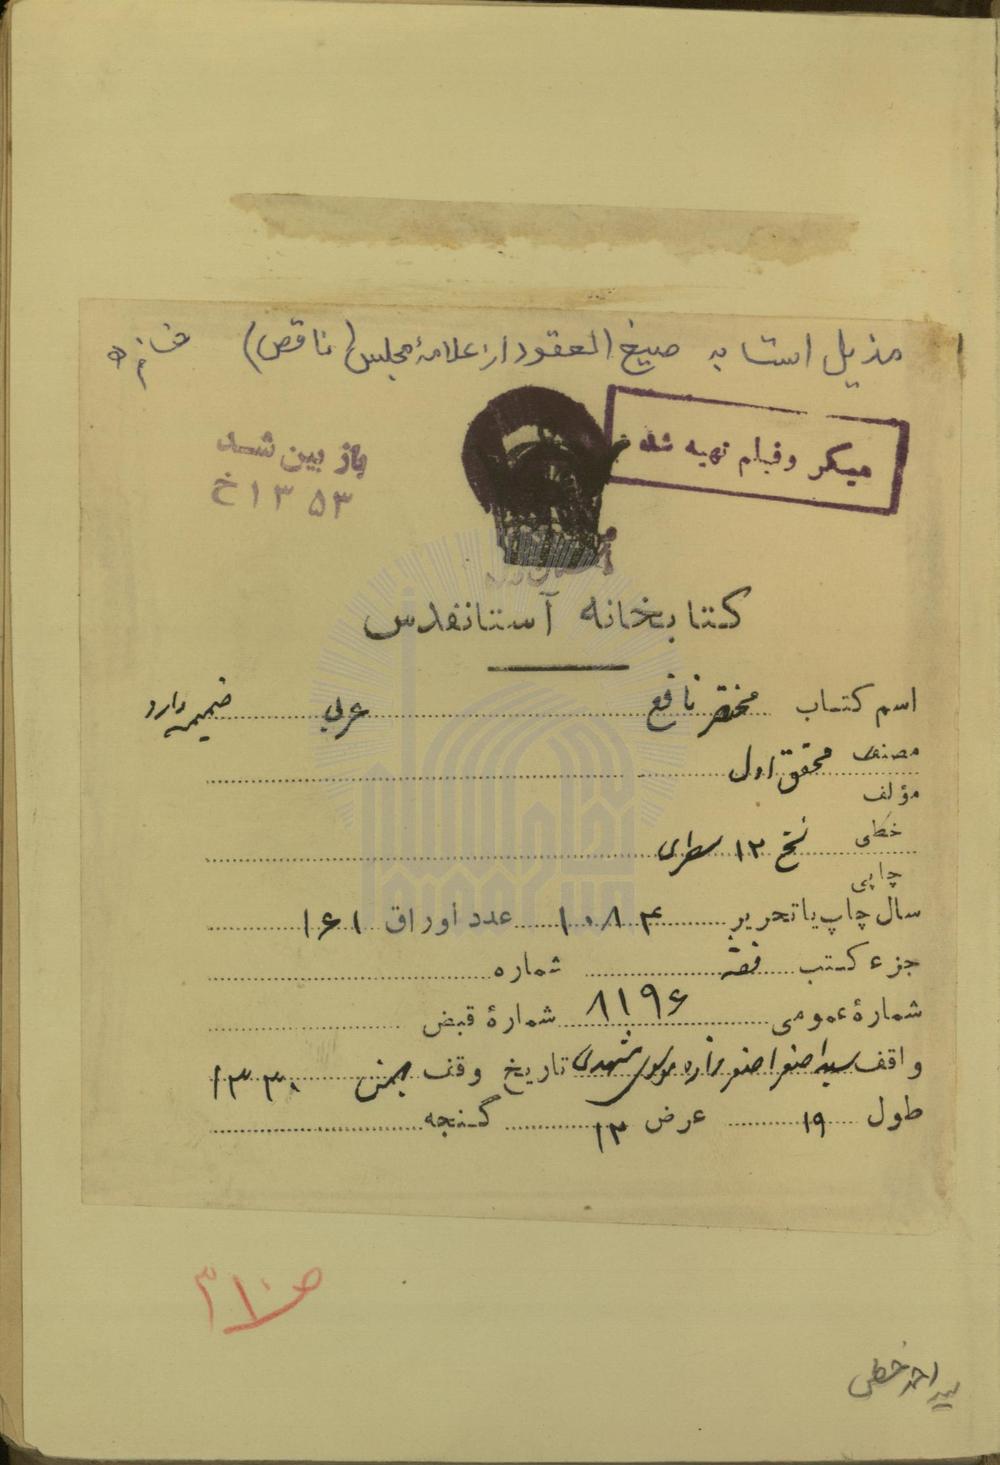 مذیل است به صیغ العقود از علامهٔ مجلسی (ناقص)
میکروفیلم تهیه شد
بازبین شد
۱۳۵۳ خ
کتابخانه آستانقدس
اسم کتاب مختصر نافع عربی ضمیمه دارد
مصنف محقق اول
مؤلف
خطی نسخ ۱۲ سطری
چاپی
سال چاپ یا تحریر ۱۰۸۴ عدد اوراق ۱۶۱
جزء کتب فقه شماره
شمارهٔ عمومی ۸۱۹۶ شمارهٔ قبض
واقف سید اصغر اصغرزاده موسوی مشهدی تاریخ وقف بهمن ۱۳۳۰
طول ۱۹ عرض ۱۳ گنجه